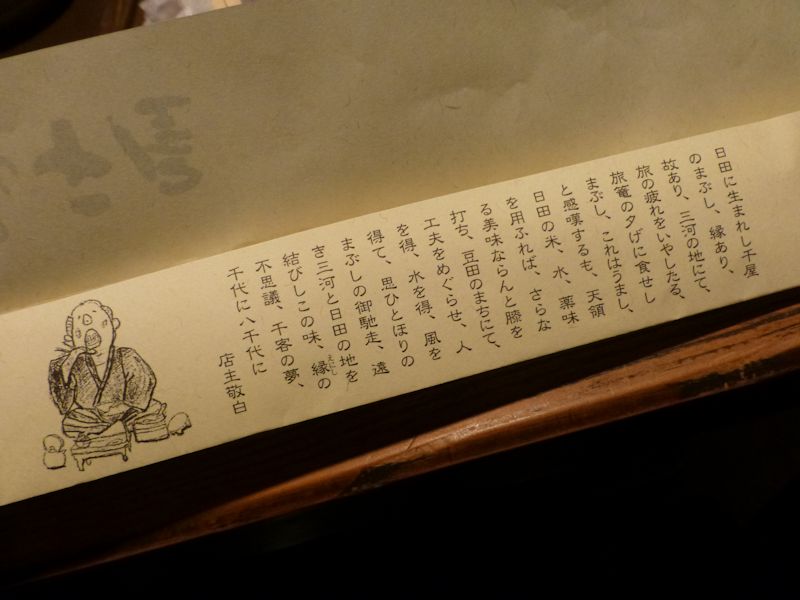 日田に生まれし千屋
のまぶし、縁あり、
故あり、三河の地にて、
旅の疲れをいやしたる、
旅篭の夕げに食せし
まぶし、これはうまし、
と感嘆するも、天領
日田の米、水、薬味
を用ふれば、さらな
る美味ならんと膝を
打ち、豆田のまちにて、
工夫をめぐらせ、人
を得、水を得、風を
得て、思ひとほりの
まぶしの御馳走、遠
き三河と日田の地を
結びしこの味、縁の
えにし
不思議、千客の夢、
千代に八千代に
店主敬白